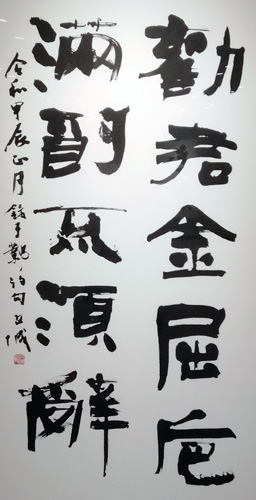 勸君金屈卮
滿酌不須辭
令和甲辰正月 錄于鄴詩句